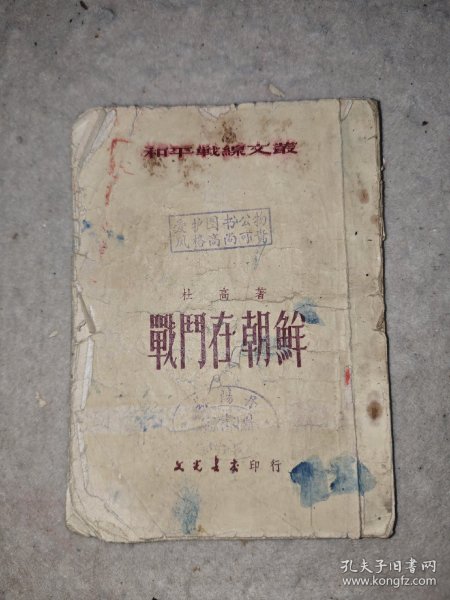 和平戰線文叢
爱护图书公物
风格高尚可贵
杜高著
戰鬥在朝鮮
文光書店印行
孔夫子旧书网
www.kongfz.com